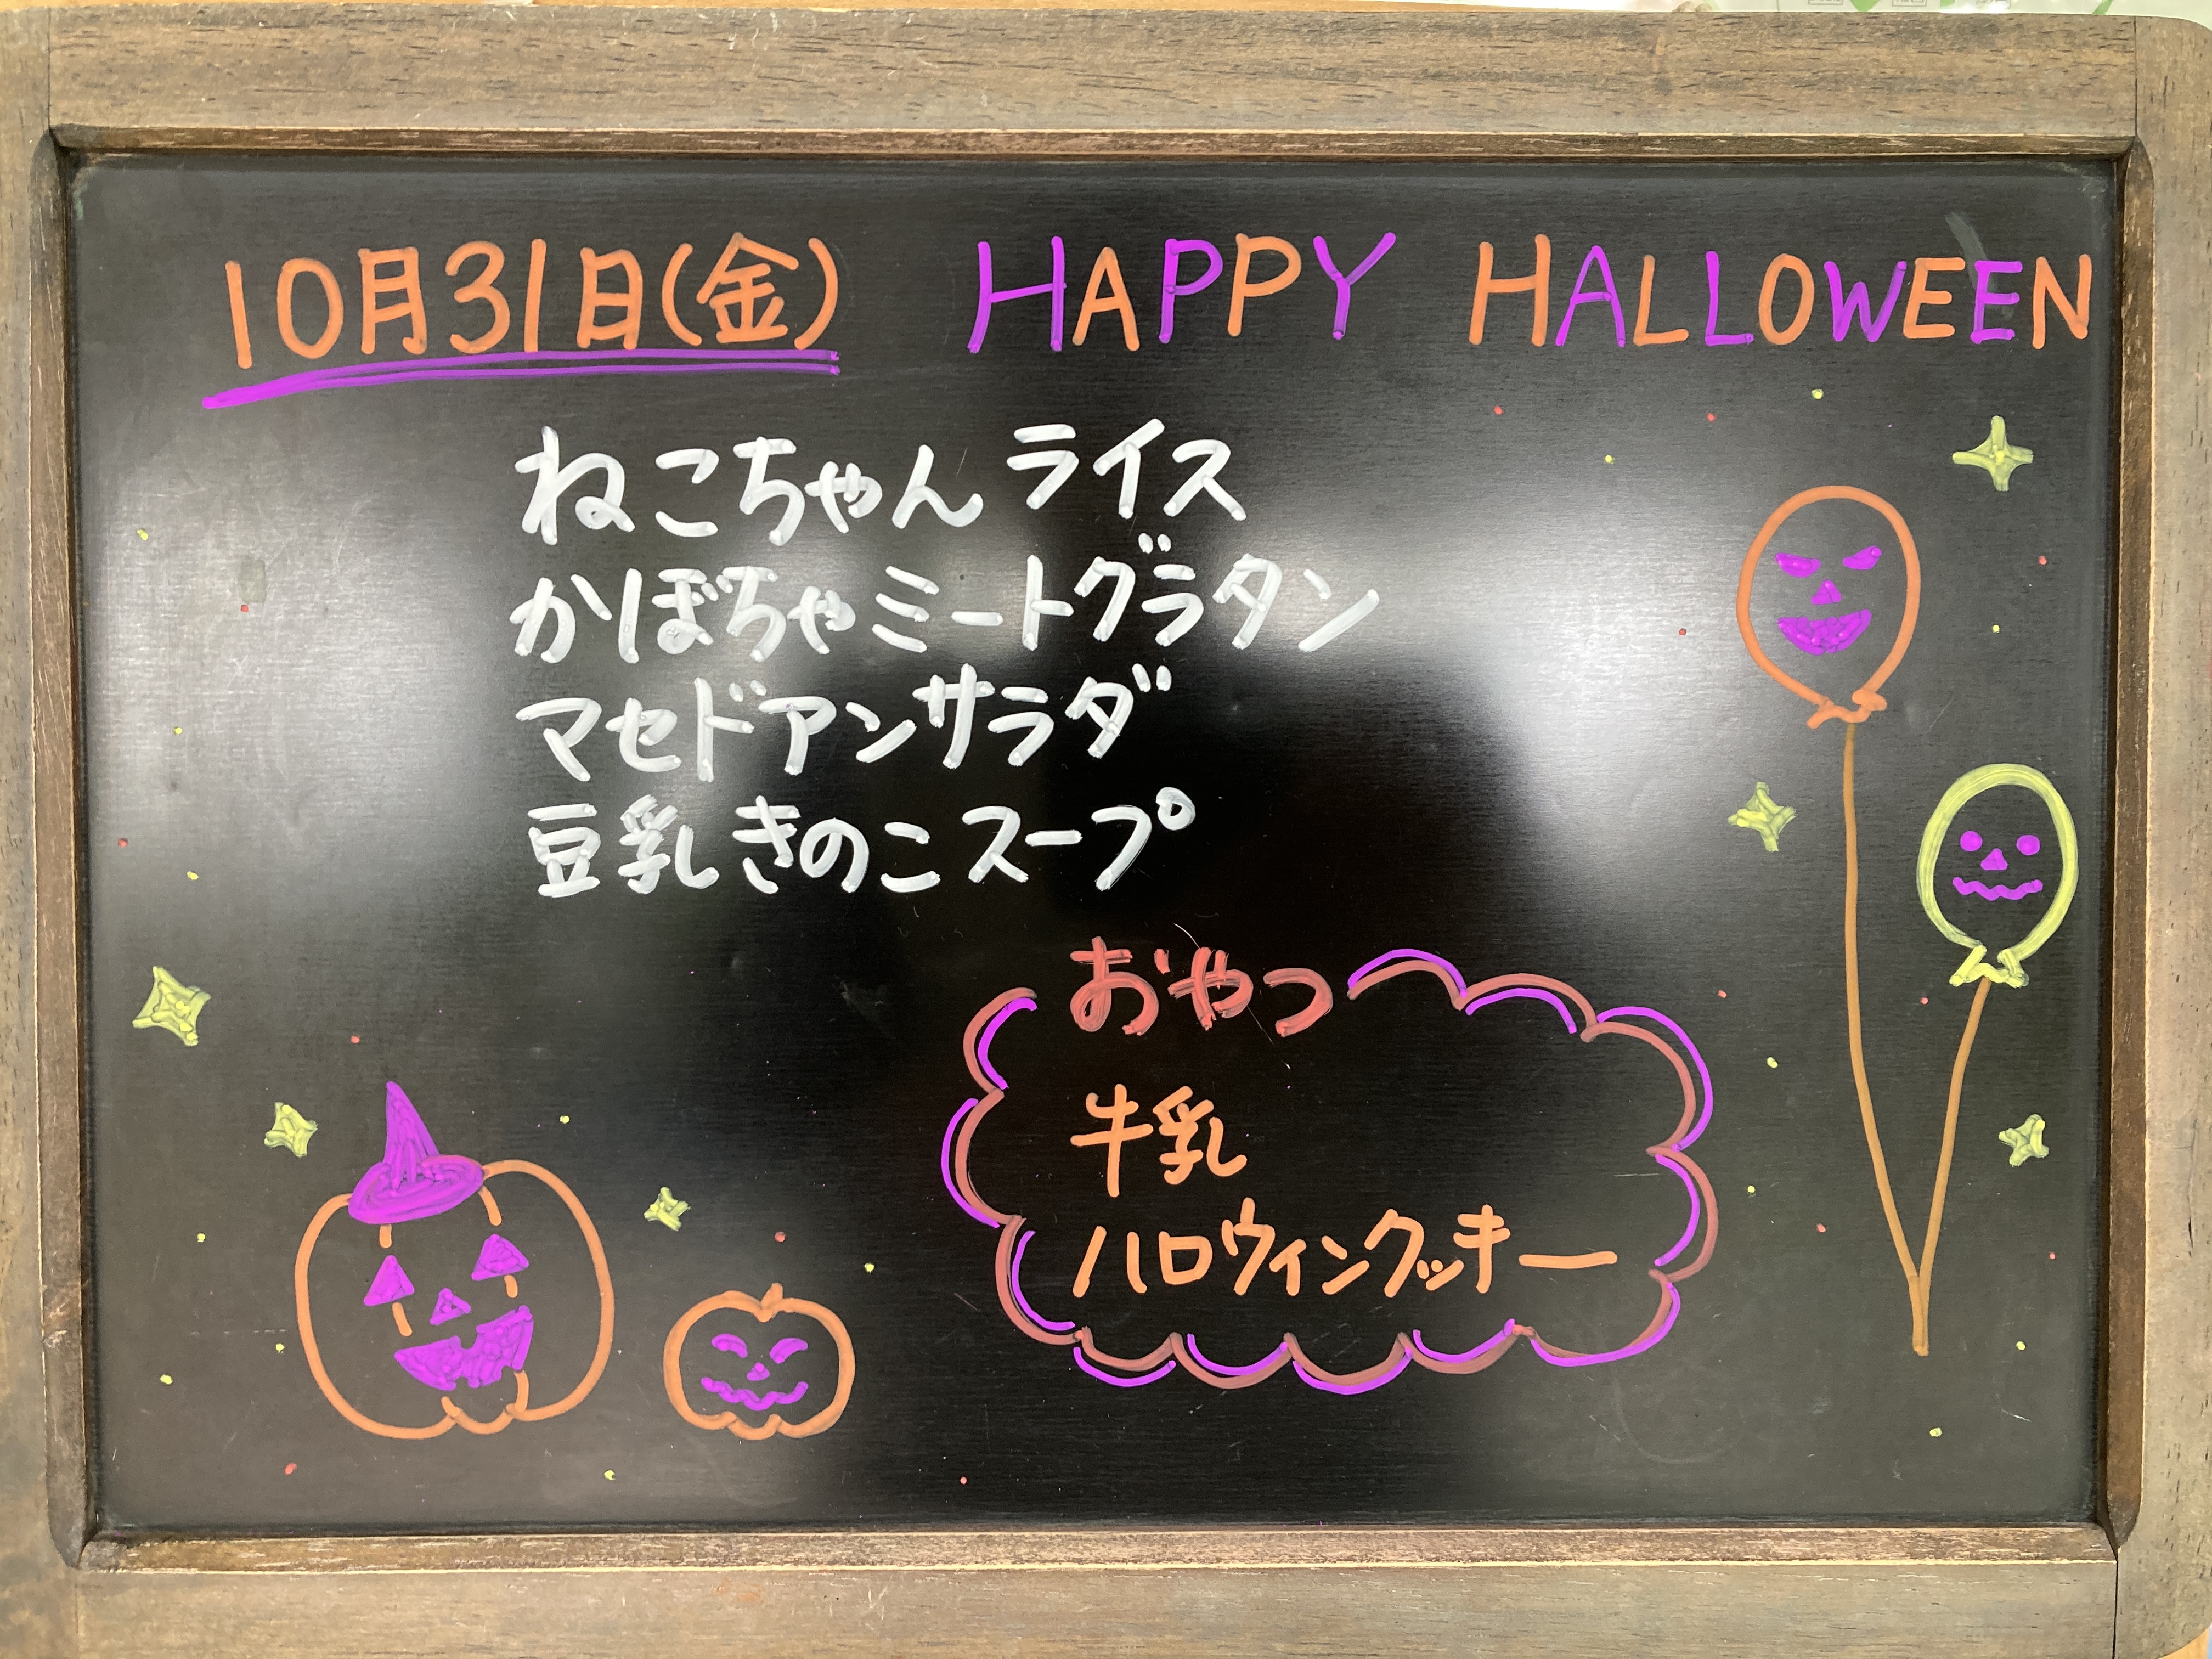 10月31日(金) HAPPY HALLOWEEN
ねこちゃんライス
かぼちゃミートグラタン
マセドアンサラダ
豆乳きのこスープ
おやつ
牛乳
ハロウィンクッキー